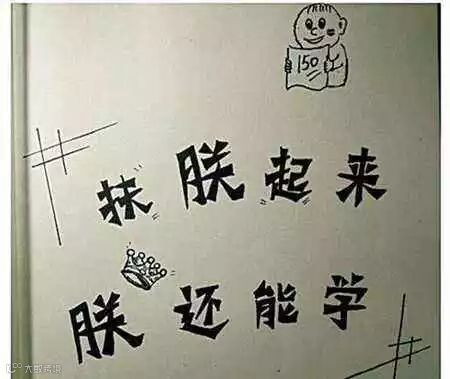 150
扶朕起来
朕还能学
大数跨境